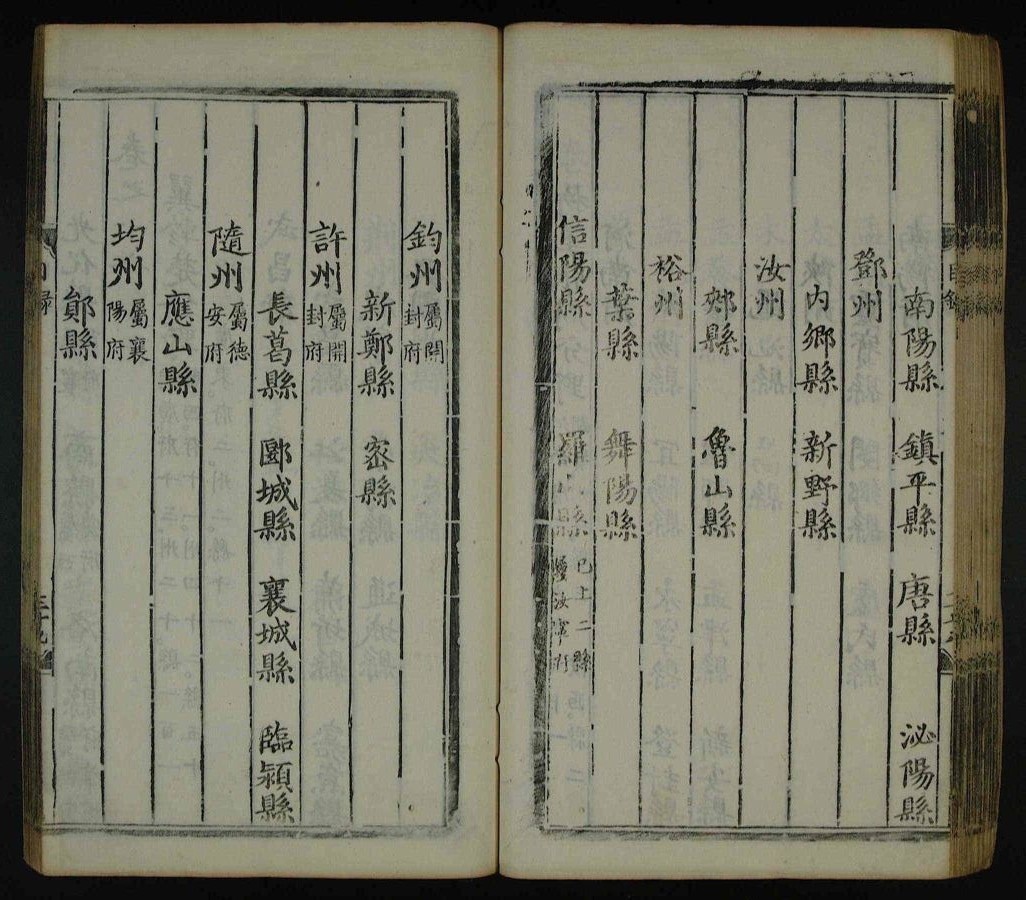 南陽縣 鎮平縣 唐縣 泌陽縣
鄧州
內鄉縣 新野縣
汝州
郟縣 魯山縣
裕州
葉縣 舞陽縣
信陽縣 羅山縣 已上二縣屬汝寧府
鈞州 屬開封府
新鄭縣 密縣
許州 屬開封府
長葛縣 郾城縣 襄城縣 臨潁縣
隨州 屬德安府
應山縣
均州 屬襄陽府
鄖縣
目錄